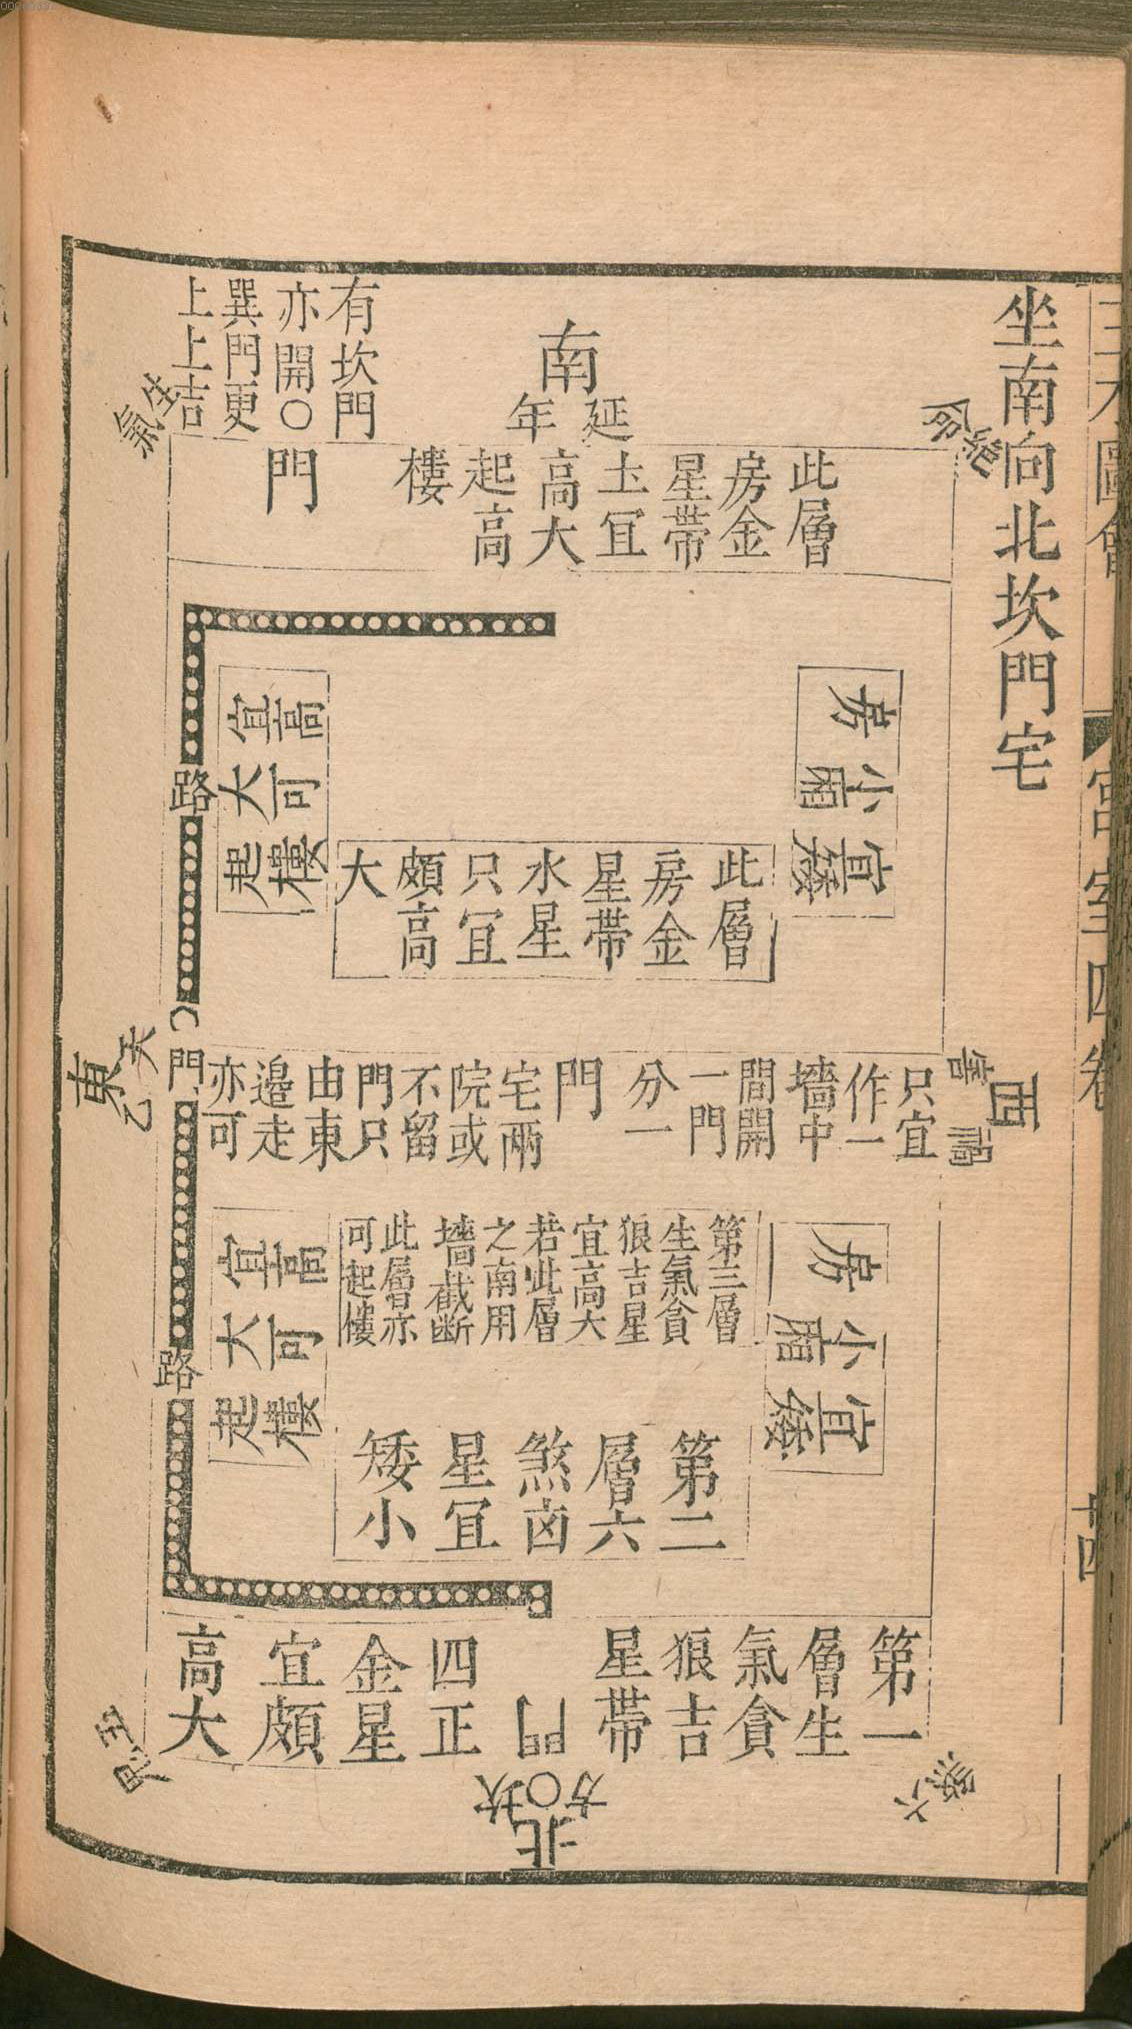 三才圖會
宮室四卷
十四
坐南向北坎門宅
南
延年
絕命
有坎門
亦開○
巽門更
上上吉
生氣
此層
房金
星帶
土宜
高大
起高
樓
門
房
小廂
宜矮
高可樓
宜大起
路
此層
房金
星帶
水星
只宜
頗高
大
西
禍害
只宜
作一
墻中
間開
一門
分一
門
宅兩
院或
不留
門只
由東
邉走
亦可
門
東
天乙
房
小廂
宜矮
第三層
生氣貪
狼吉星
宜高大
若此層
之南用
墻截斷
此層亦
可起樓
高可樓
宜大起
路
第二
層六
煞凶
星宜
矮小
第一
層生
氣貪
狼吉
星帶
門
四正
金星
宜頗
高大
六煞
坎○方
北
五鬼